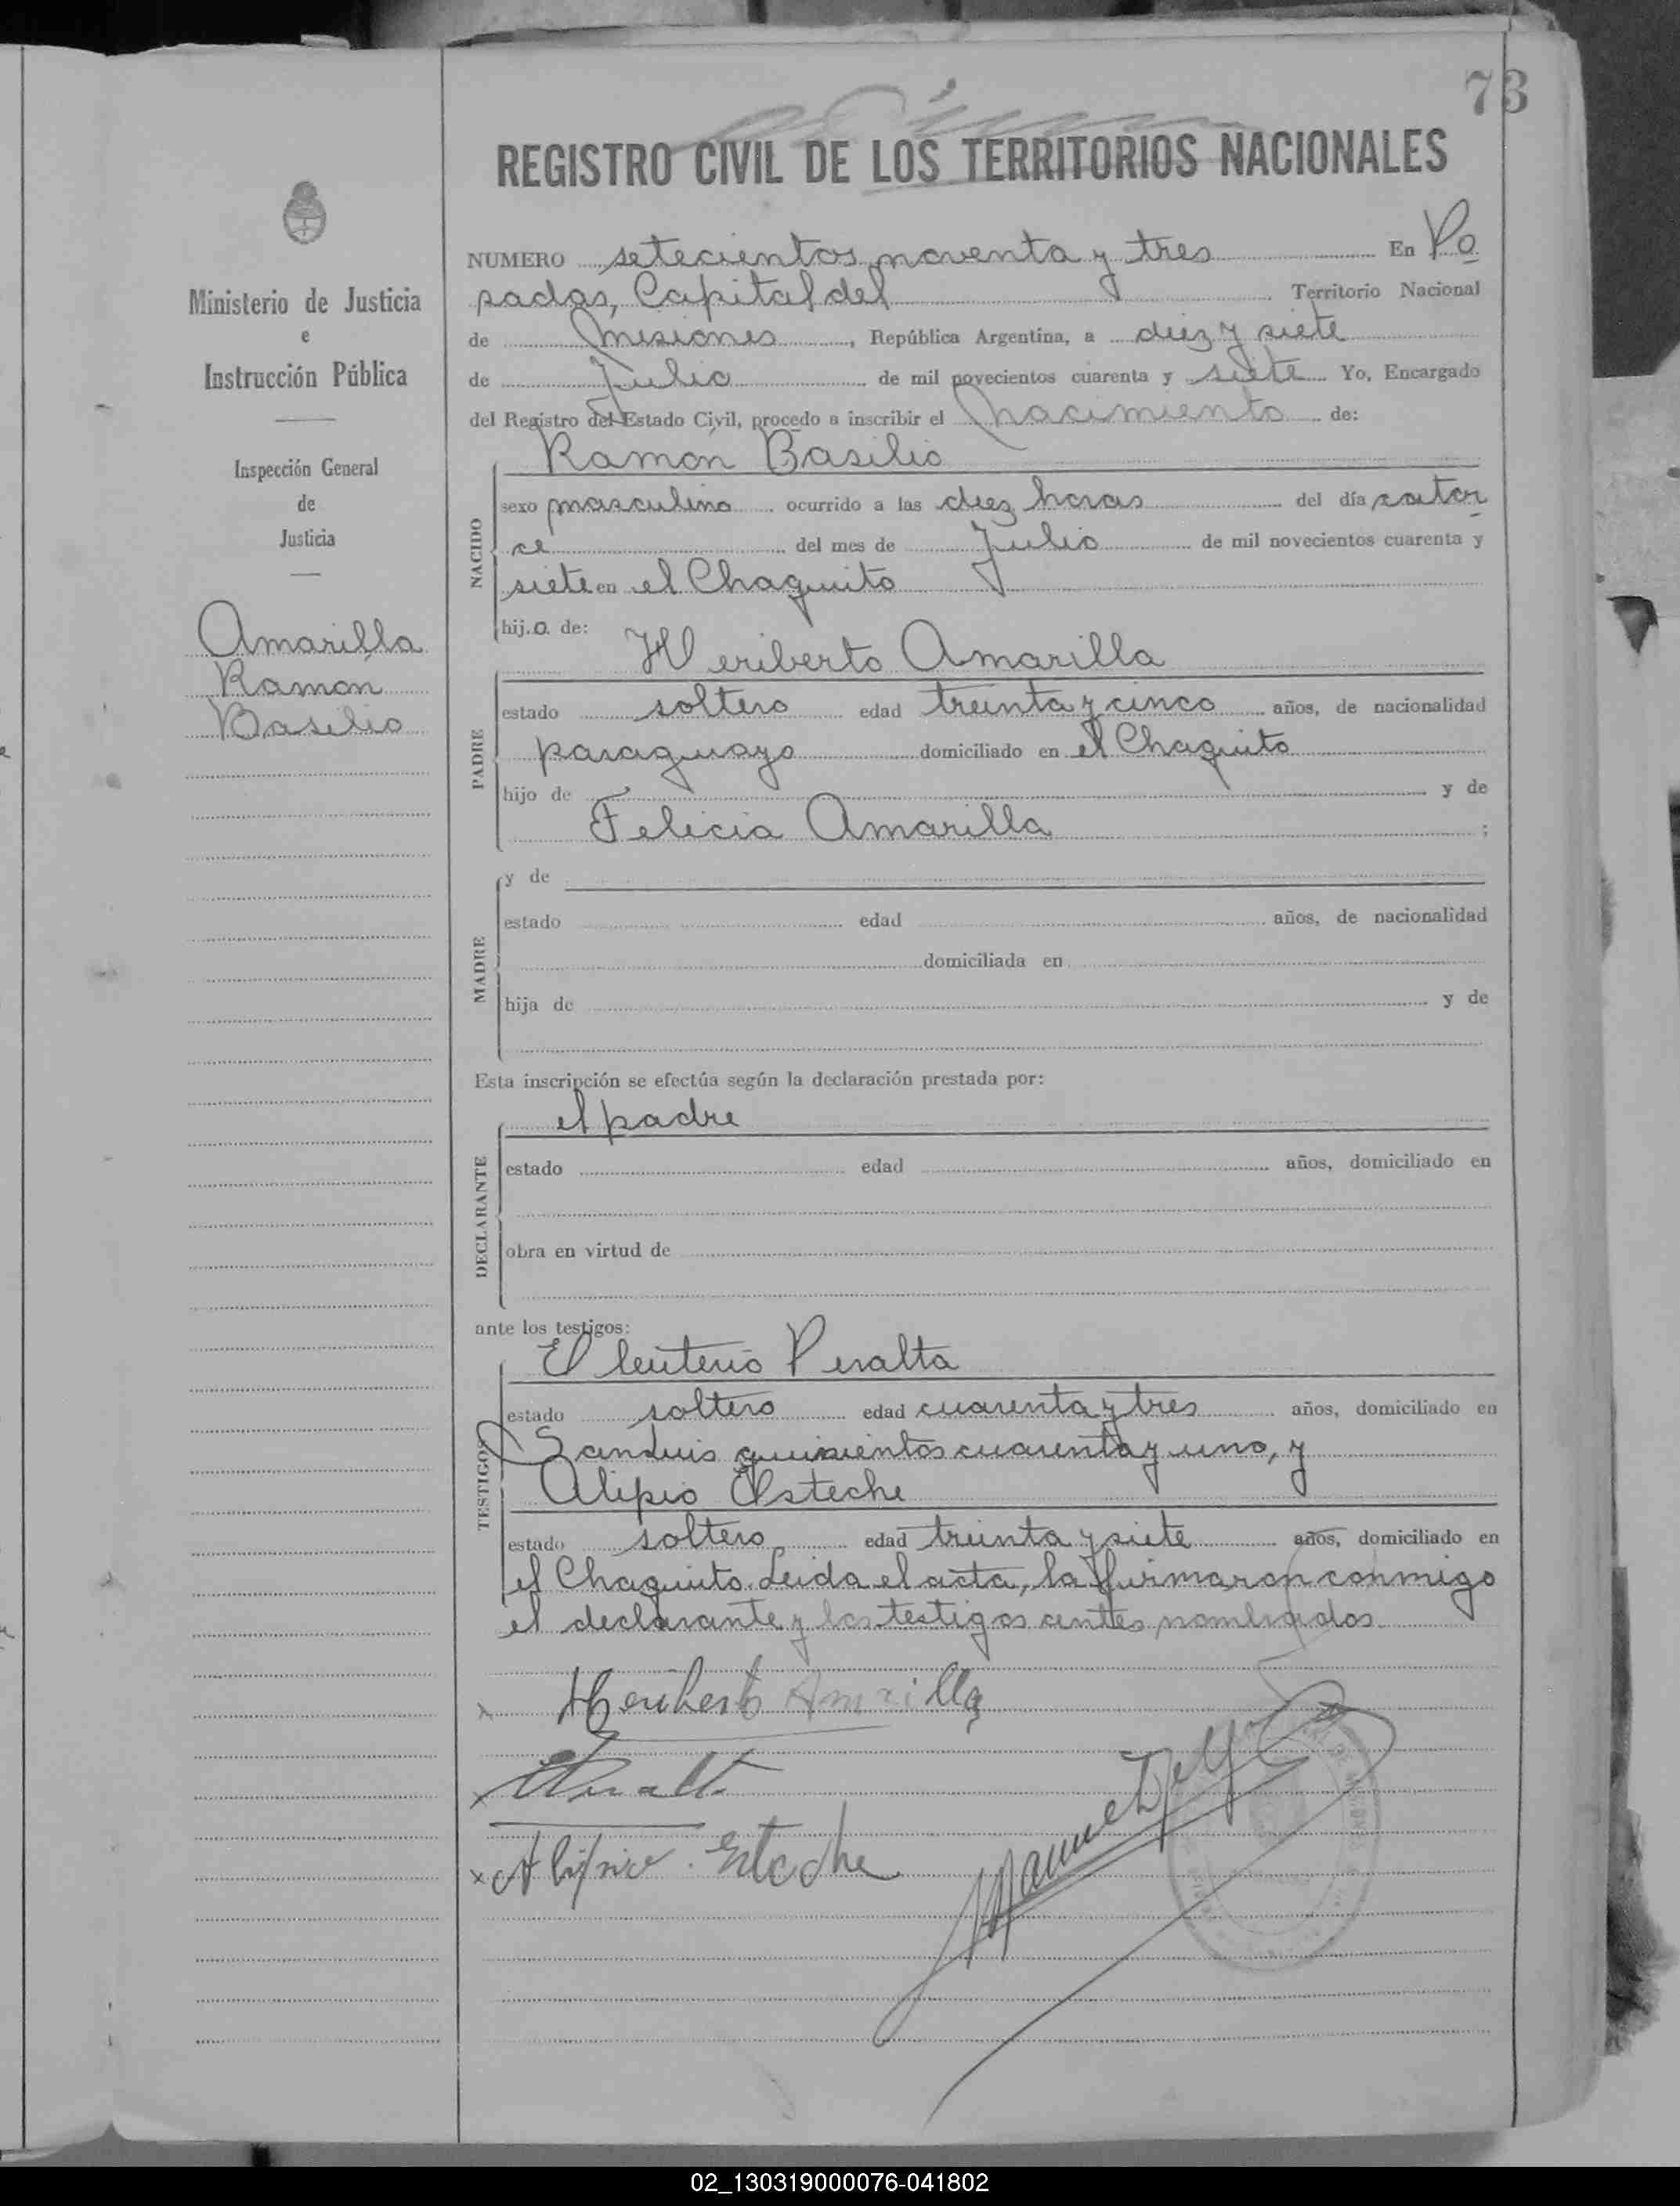 73
REGISTRO CIVIL DE LOS TERRITORIOS NACIONALES
Ministerio de Justicia
e
Instrucción Pública
Inspección General
de
Justicia
Amarilla
Ramón
Basilio
NUMERO setecientos noventa y tres En Po
sadas, Capital del Territorio Nacional
de Misiones, República Argentina, a diez y siete
de Julio de mil novecientos cuarenta y siete Yo, Encargado
del Registro del Estado Civil, procedo a inscribir el nacimiento de:
Ramón Basilio
NACIDO
sexo masculino ocurrido a las diez horas del día cator
ce del mes de Julio de mil novecientos cuarenta y
siete en el Chaquito
hij.o. de:
Heriberto Amarilla
PADRE
estado soltero edad treinta y cinco años, de nacionalidad
paraguayo domiciliado en el Chaquito
hijo de y de
Felicia Amarilla ;
MADRE
y de
estado edad años, de nacionalidad
domiciliada en
hija de y de
Esta inscripción se efectúa según la declaración prestada por:
el padre
DECLARANTE
estado edad años, domiciliado en
obra en virtud de
ante los testigos:
Eleuterio Peralta
TESTIGOS
estado soltero edad cuarenta y tres años, domiciliado en
San Luis quinientos cuarenta y uno, y
Alipio Esteche
estado soltero edad treinta y siete años, domiciliado en
el Chaquito. Leida el acta, la firmaron conmigo
el declarante y los testigos antes nombrados
x Heriberto Amarilla
x EPeralta
x Alipio. Esteche
Manuel
02_130319000076-041802